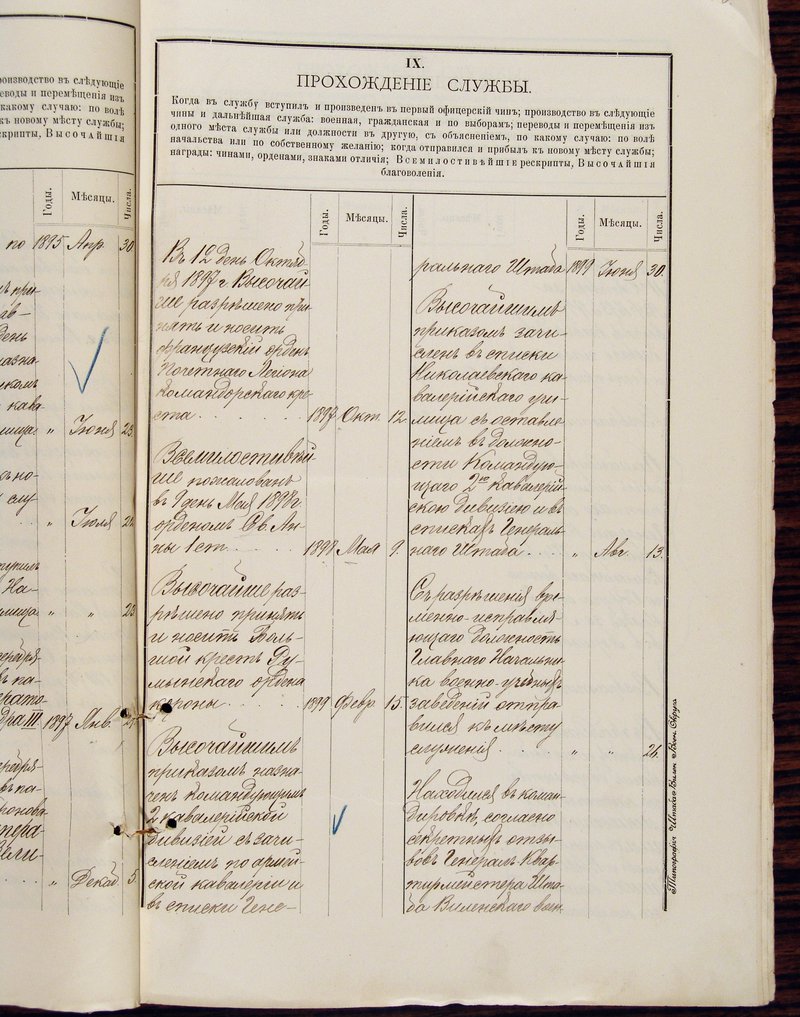 роизводство въ слѣдующіе
еводы и перемѣщенія изъ
какому случаю: по волѣ
къ новому мѣсту службы;
скрипты, Высочайшія
Годы.
Мѣсяцы.
Числа.
по 1895 Апр. 30
день
комъ
кава
лища. " Іюня 23.
слу
" Іюля
На-
лища " " 23
дра III 1897 Янв.
" Декаб 5
IX.
ПРОХОЖДЕНІЕ СЛУЖБЫ.
Когда въ службу вступилъ и произведенъ въ первый офицерскій чинъ; производство въ слѣдующіе
чины и дальнѣйшая служба: военная, гражданская и по выборамъ; переводы и перемѣщенія изъ
одного мѣста службы или должности въ другую, съ объясненіемъ, по какому случаю: по волѣ
начальства или по собственному желанію; когда отправился и прибылъ къ новому мѣсту службы;
награды: чинами, орденами, знаками отличія; Всемилостивѣйшіе рескрипты, Высочайшія
благоволенія.
Годы.
Мѣсяцы.
Числа.
Въ 12 день Октяб
ря 1897 г Высочай
ше разрѣшено при
нять и носить
французскій орденъ
Почетнаго Легіона
командорскаго кре
ста 1897 Окт. 12
Всемилостивѣй
ше пожалованъ
въ 9 день Мая 1898 г
орденомъ Св. Ан-
ны 1 ст. 1898 Мая 9.
Высочайше раз-
рѣшено принять
и носить Боль-
шой крестъ Ру-
мынскаго ордена
короны 1899 Февр. 15.
Высочайшимъ
приказомъ назна-
ченъ командующимъ
2 кавалерійской
дивизіей съ зачи-
сленіемъ по армей-
ской кавалеріи и
въ списки Гене-
Годы.
Мѣсяцы.
Числа.
ральнаго Штаба 1899 Іюня 30.
Высочайшимъ
приказомъ зачи-
сленъ въ списки
Николаевскаго ка-
валерійскаго учи-
лища съ оставле-
ніемъ въ должно-
сти Командую-
щаго 2ою кавалерій-
скою дивизіею и въ
спискахъ Генераль-
наго Штаба " Авг. 13.
Съ разрѣшенія вре-
менно-исправля-
ющаго должность
Главнаго Начальни-
ка военно-учебныхъ
заведеній отпра-
вился къ мѣсту
служенія " " 26.
Находился въ коман-
дировкѣ, согласно
секретныхъ отзы-
вовъ Генералъ Квар-
тирмейстера Шта-
ба Виленскаго воен-
Типографія Штаба Вилен. Воен. Округа